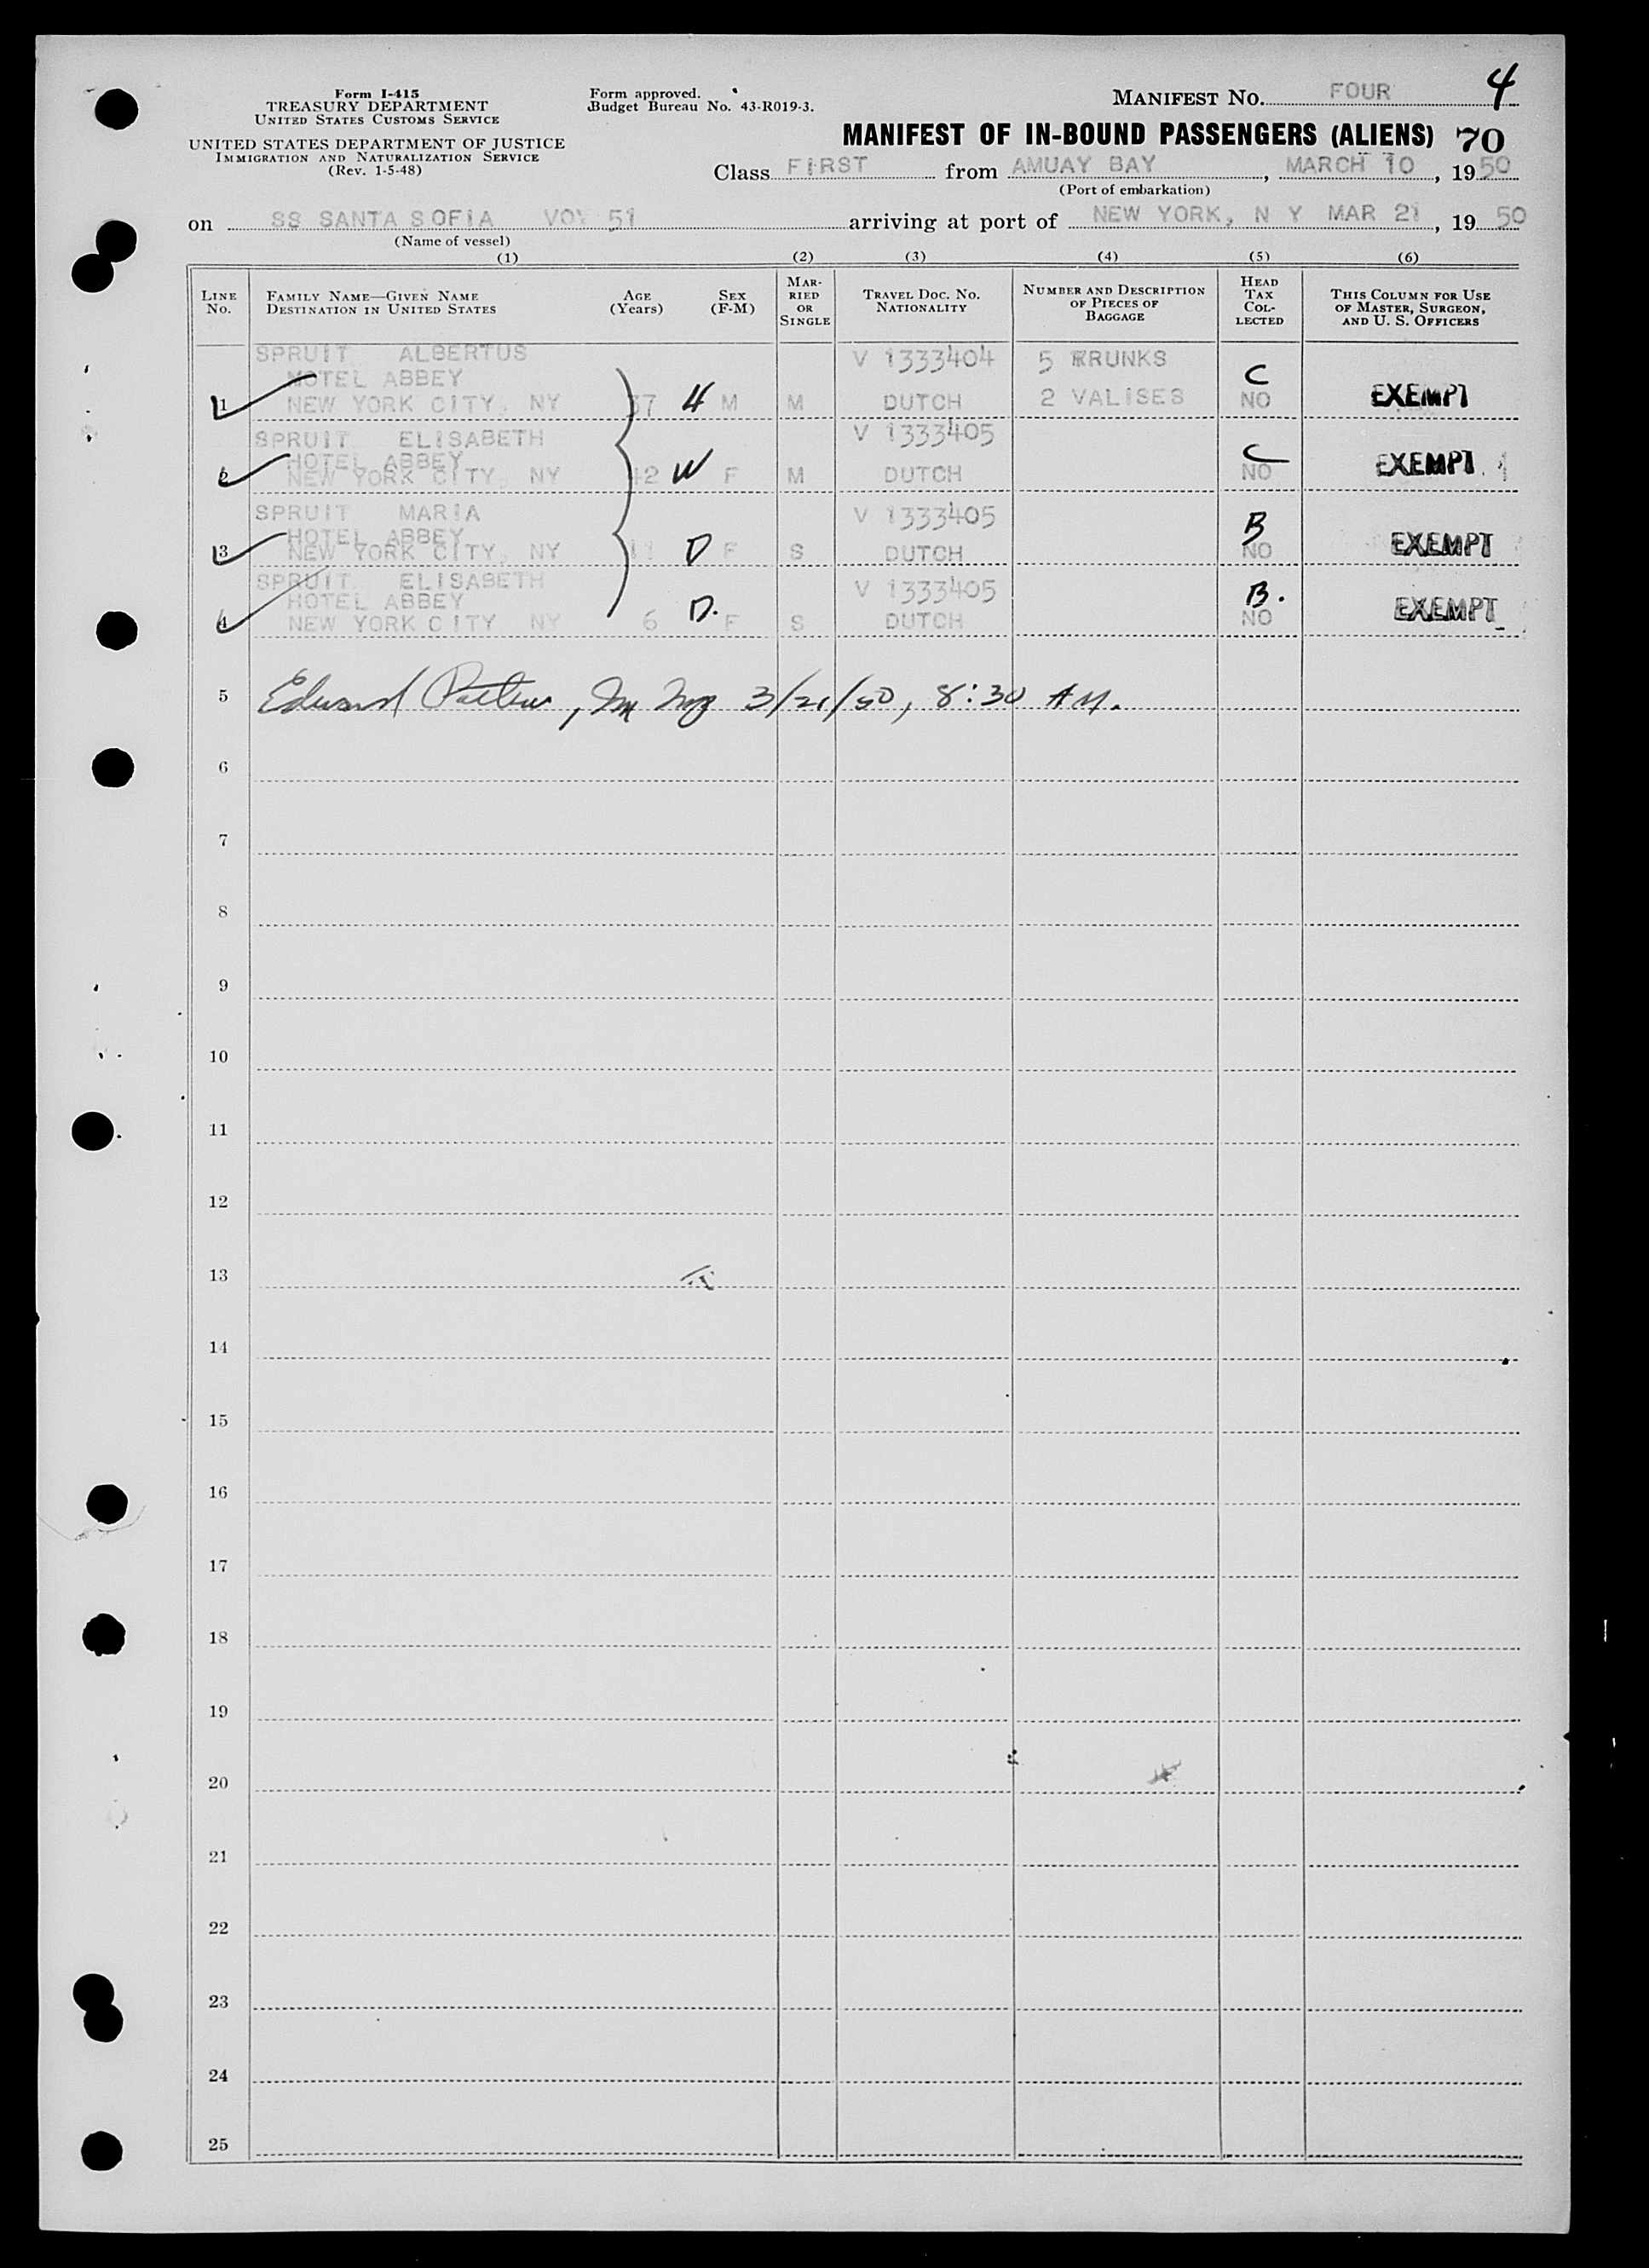 Form I-415
TREASURY DEPARTMENT
UNITED STATES CUSTOMS SERVICE
UNITED STATES DEPARTMENT OF JUSTICE
IMMIGRATION AND NATURALIZATION SERVICE
(Rev. 1-5-48)
Form approved.
Budget Bureau No. 43-R019-3.
MANIFEST NO. FOUR 4
MANIFEST OF IN-BOUND PASSENGERS (ALIENS) 70
Class FIRST from AMUAY BAY, MARCH 10, 1950
(Port of embarkation)
on SS SANTA SOFIA VOY 51 arriving at port of NEW YORK, N Y MAR 21, 1950
(Name of vessel)
(1) (2) (3) (4) (5) (6)
LINE NO.
FAMILY NAME—GIVEN NAME
DESTINATION IN UNITED STATES
AGE (Years)
SEX (F-M)
MARRIED OR SINGLE
TRAVEL DOC. NO.
NATIONALITY
NUMBER AND DESCRIPTION OF PIECES OF BAGGAGE
HEAD TAX COLLECTED
THIS COLUMN FOR USE OF MASTER, SURGEON, AND U. S. OFFICERS
SPRUIT ALBERTUS V 1333404 5 TRUNKS
HOTEL ABBEY C
1 NEW YORK CITY, NY 37 H M M DUTCH 2 VALISES NO EXEMPT
SPRUIT ELISABETH V 1333405
HOTEL ABBEY C
2 NEW YORK CITY, NY 42 W F M DUTCH NO EXEMPT
SPRUIT MARIA V 1333405
HOTEL ABBEY B
3 NEW YORK CITY, NY 11 D F S DUTCH NO EXEMPT
SPRUIT ELISABETH V 1333405
HOTEL ABBEY B.
4 NEW YORK CITY NY 6 D. F S DUTCH NO EXEMPT
5 Edward 3/21/50, 8:30 AM.
6
7
8
9
10
11
12
13
14
15
16
17
18
19
20
21
22
23
24
25